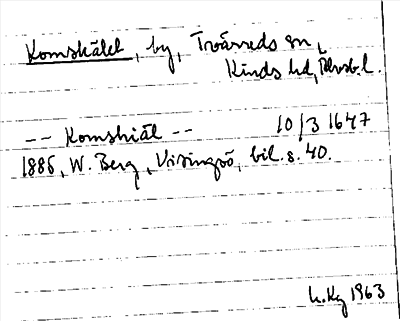 Komskälet, by, Tvärreds sn,
Kinds hd, Älvsb. l.
-- Komshiäl -- 10/3 1647
1885, W. Berg, Visingsö, bil. s. 40.
1963